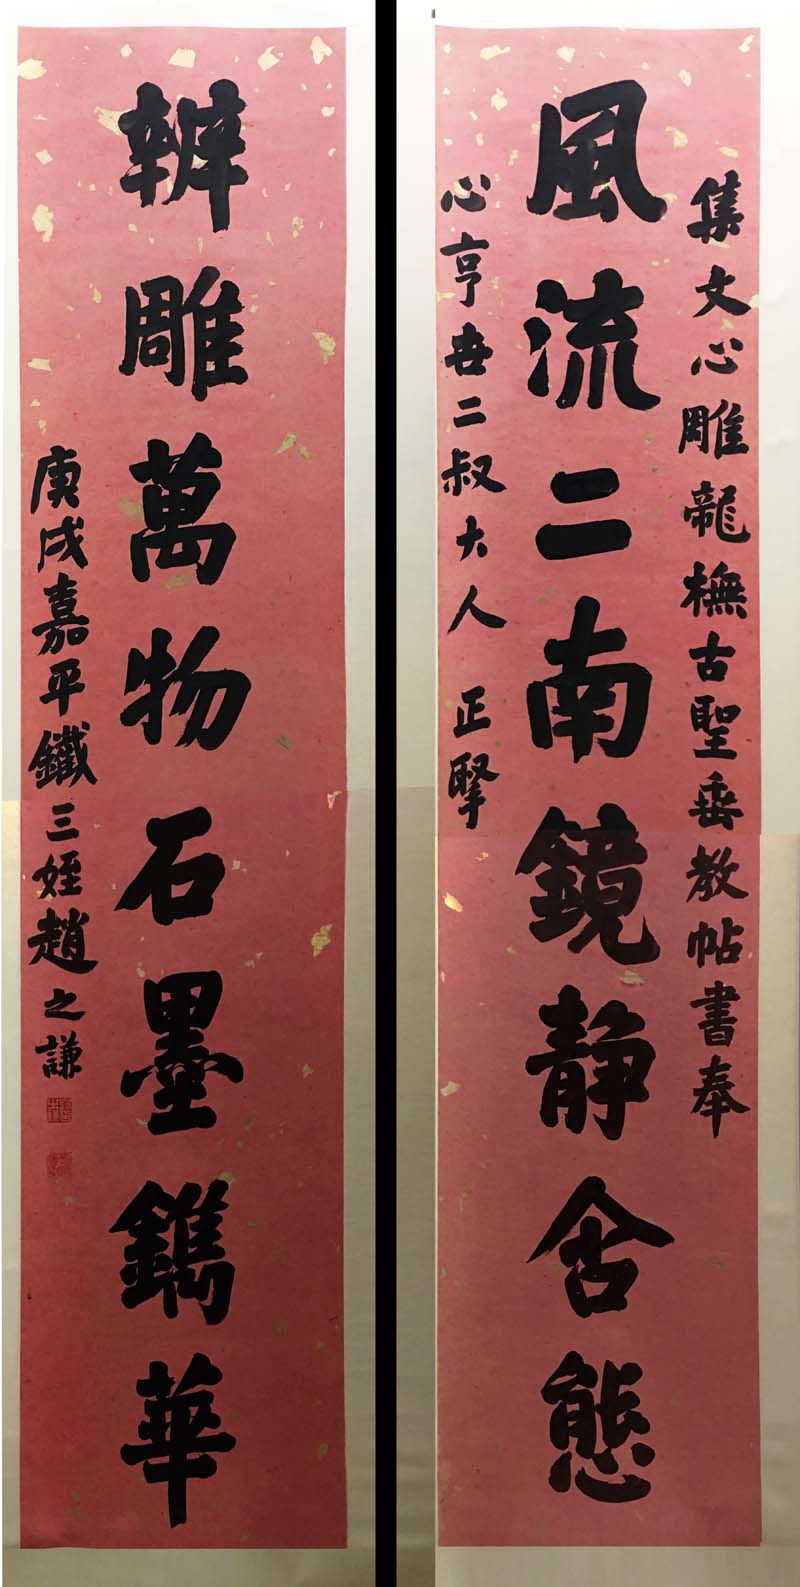 集文心雕龍橅古聖垂教帖書奉
風流二南鏡静含態
心亨世二叔大人 正掔
辨雕萬物石墨鐫華
庚戌嘉平鐵三姪趙之謙